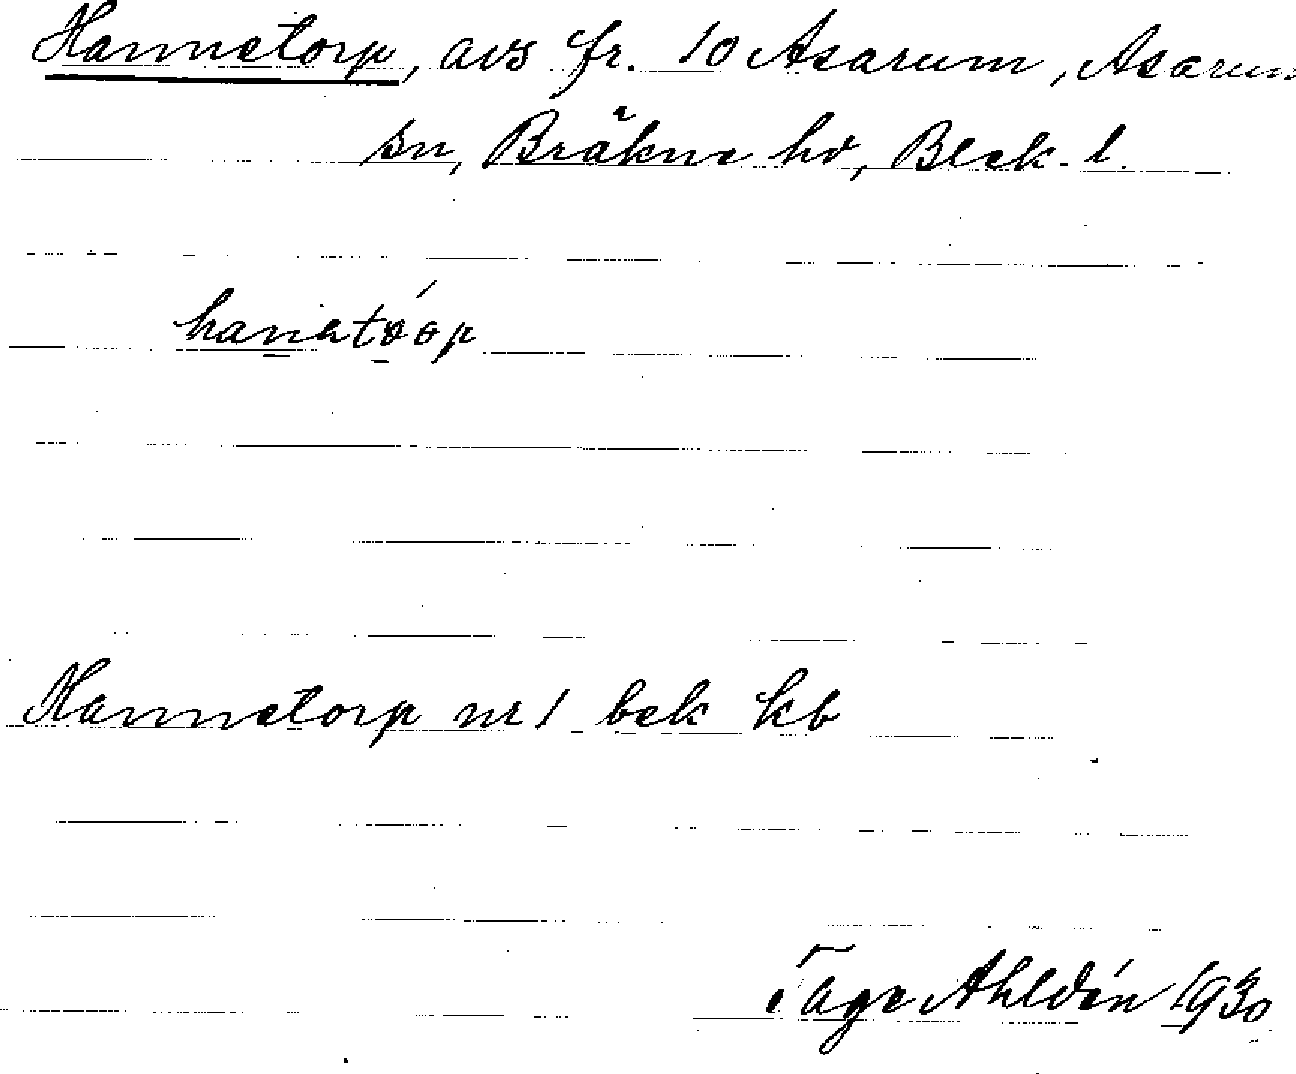 Hannetorp, avs fr. 10 Asarum, Asarum
sn, Bräkne hd, Blek. l.
Hannetorp nr 1 bek kb
Tage Ahldén 1930